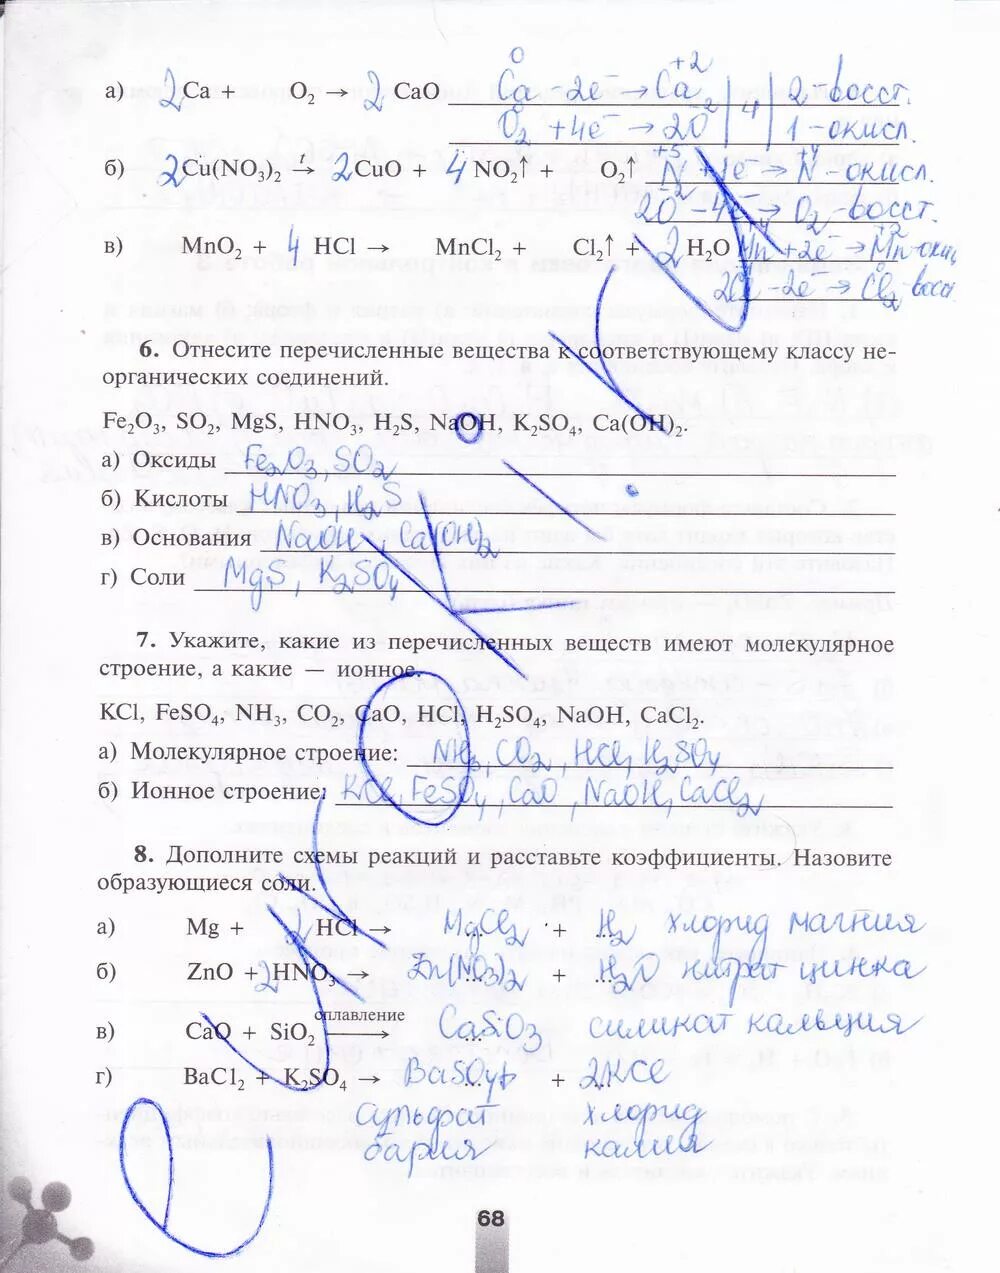 0 +2
а) 2 Ca + O₂ → 2 CaO Ca - 2e⁻ → Ca | 4 | 2 - восст.
O₂ + 4e⁻ → 2O⁻² | | 1 - окисл.
б) 2 Cu(NO₃)₂ →ᵗ 2 CuO + 4 NO₂↑ + O₂↑ N⁺⁵ + 1e⁻ → N⁺⁴ - окисл.
2O⁻² - 4e⁻ → O₂ - восст.
в) MnO₂ + 4 HCl → MnCl₂ + Cl₂↑ + 2 H₂O Mn⁺⁴ + 2e⁻ → Mn⁺² - окис
2Cl - 2e⁻ → Cl₂⁰ - восс
6. Отнесите перечисленные вещества к соответствующему классу не-
органических соединений.
Fe₂O₃, SO₂, MgS, HNO₃, H₂S, NaOH, K₂SO₄, Ca(OH)₂.
а) Оксиды Fe₂O₃, SO₂
б) Кислоты HNO₃, H₂S
в) Основания NaOH, Ca(OH)₂
г) Соли MgS, K₂SO₄
7. Укажите, какие из перечисленных веществ имеют молекулярное
строение, а какие — ионное.
KCl, FeSO₄, NH₃, CO₂, CaO, HCl, H₂SO₄, NaOH, CaCl₂.
а) Молекулярное строение: NH₃, CO₂, HCl, H₂SO₄
б) Ионное строение: KCl, FeSO₄, CaO, NaOH, CaCl₂
8. Дополните схемы реакций и расставьте коэффициенты. Назовите
образующиеся соли.
а) Mg + 2 HCl → MgCl₂ + H₂ хлорид магния
б) ZnO + 2 HNO₃ → Zn(NO₃)₂ + H₂O нитрат цинка
сплавление
в) CaO + SiO₂ → CaSiO₃ силикат кальция
г) BaCl₂ + K₂SO₄ → BaSO₄↓ + 2KCl
сульфат хлорид
бария калия
68